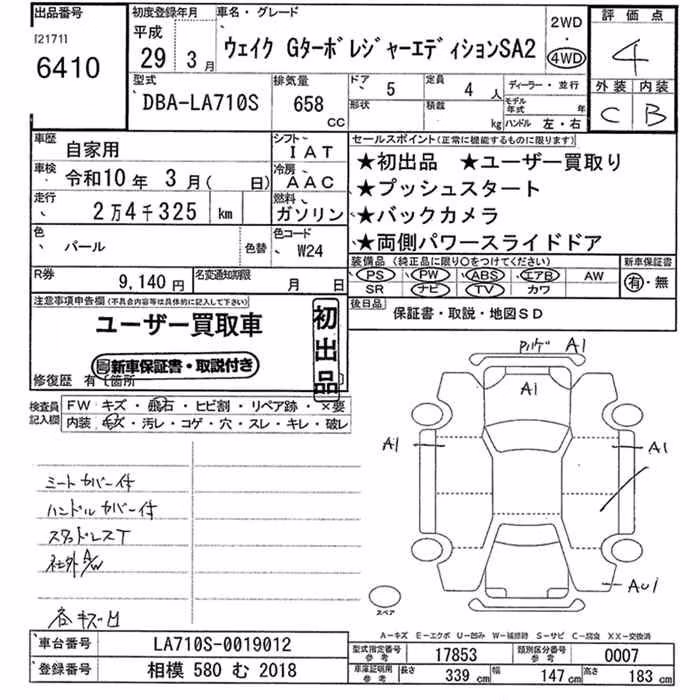 出品番号
[2171]
6410
初度登録年月
平成
29年 3月
車名・グレード
ウェイク GターボレジャーエディションSA2
2WD
・
4WD
評価点
4
外装 内装
C B
型式
DBA-LA710S
排気量
658
CC
ドア
5
定員
4人
形状
積載
kg
ディーラー・並行
モデル年式 年
ハンドル 左・右
車歴
自家用
シフト
IAT
車検
令和10年 3月( 日)
冷房
AAC
走行
2万4千325 km
燃料
ガソリン
色
パール
色替
色コード
W24
セールスポイント(正常に機能するものに限ります)
★初出品 ★ユーザー買取り
★プッシュスタート
★バックカメラ
★両側パワースライドドア
R券
9,140円
名変通知期限
月 日
装備品 (純正品に限り○をつけてください)
PS PW ABS エアB AW
SR ナビ TV カワ
新車保証書
有・無
後日品
保証書・取説・地図SD
注意事項申告欄(不具合内容等は具体的に記入して下さい)
ユーザー買取車
新車保証書・取説付き
初出品
修復歴 有(箇所
検査員記入欄
FW キズ・飛石・ヒビ割・リペア跡・×要
内装 キズ・汚レ・コゲ・穴・スレ・キレ・破レ
シートカバー付
ハンドルカバー付
スタッドレスT
社外A/W
各キズ凹
A1
A1
A1
A1
AU1
スペア
A-キズ E-エクボ U-凹み W-補修跡 S-サビ C-腐食 XX-交換済
車台番号
LA710S-0019012
登録番号
相模 580 む 2018
型式指定番号
参考
17853
類別区分番号
参考
0007
車庫証明用
参考
長さ
339 cm
幅
147 cm
高さ
183 cm